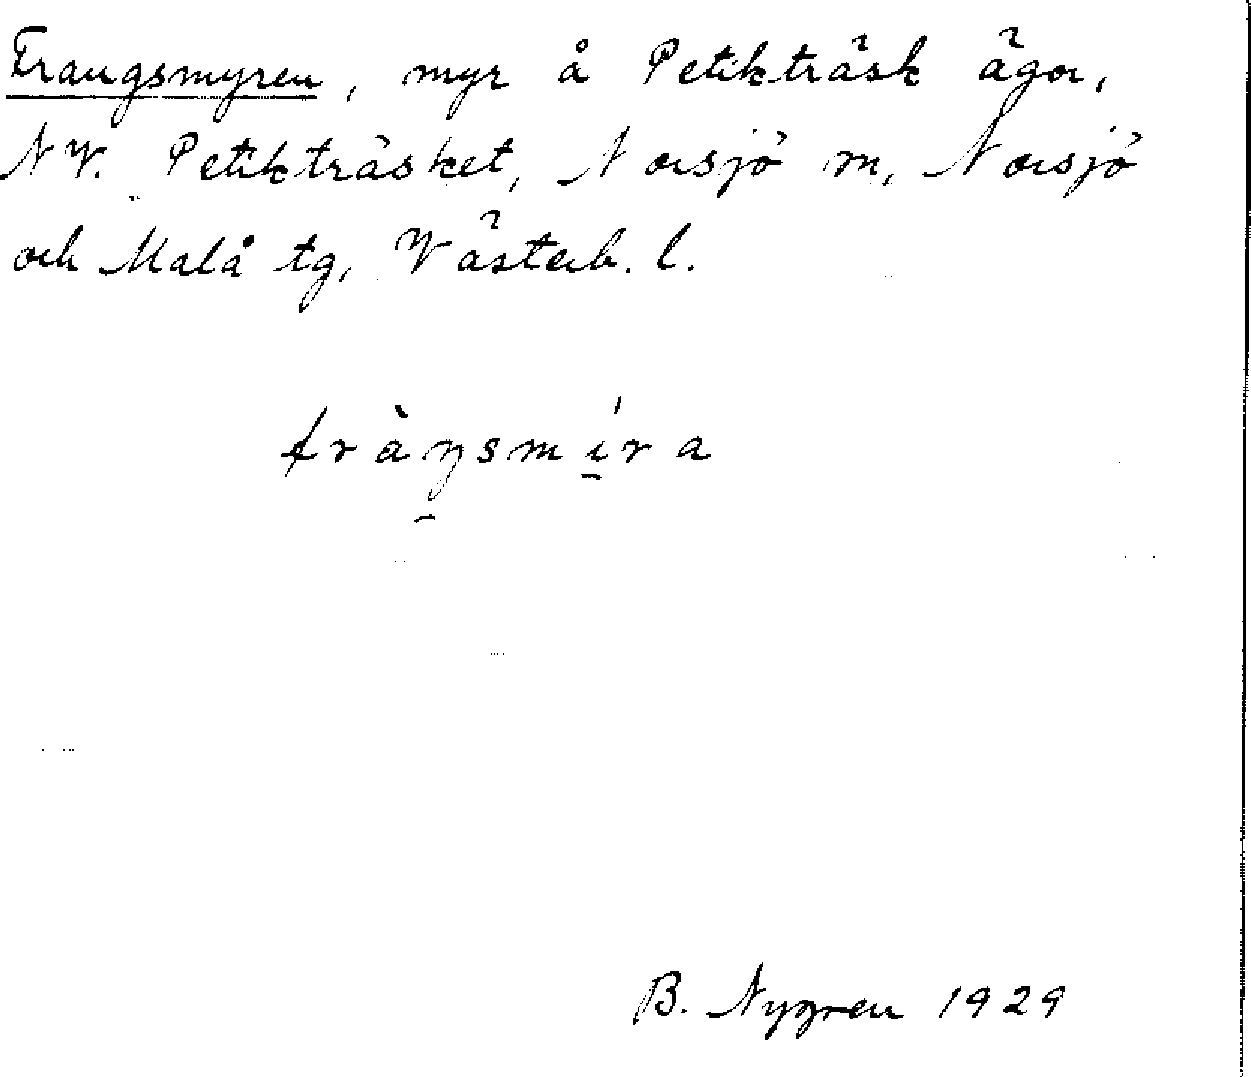 Frangsmyren, myr å Petikträsk ägor,
N V. Petikträsket, Norsjö m, Norsjö
och Malå tg, Västerb. l.
fràŋsmíra
B. Nygren 1929